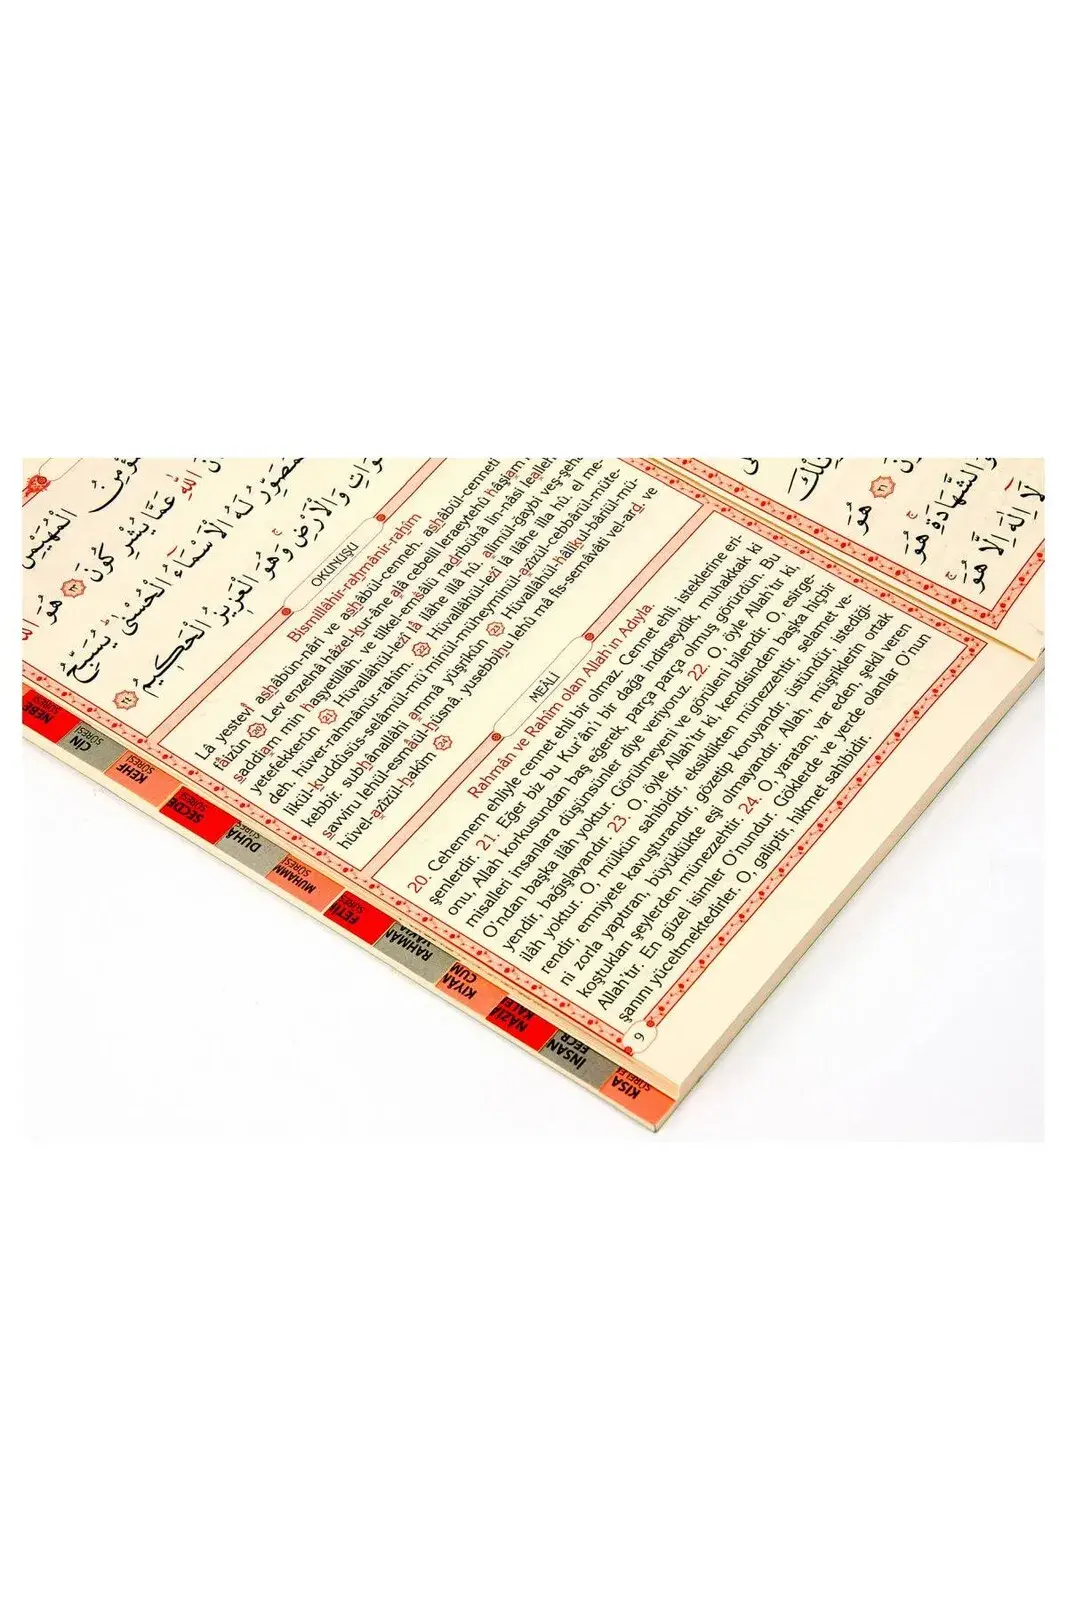 الْمُهَيْمِنُ
اللّٰهِ عَمَّا يُشْرِكُونَ ﴿٢٣﴾ هُوَ
الْمُصَوِّرُ لَهُ الْاَسْمَٓاءُ الْحُسْنٰىۜ يُسَبِّحُ
وَالْاَرْضِ وَهُوَ الْعَزِيزُ الْحَكِيمُ ﴿٢٤﴾
OKUNUŞU
Bismillâhir-rahmânir-rahîm
Lâ yestevî ashâbün-nâri ve ashâbül-cenneh. ashâbül-cenneti
fâizûn 20 Lev enzelnâ hâzel-kur-âne alâ cebelil leraeytehû hâşiam
saddiam min haşyetillâh. ve tilkel-emsâlü nadribühâ lin-nâsi leallehüm
yetefekkerûn 21 Hüvallâhül-lezî lâ ilâhe illâ hû. alimül-ğaybi veş-şehâ
deh. hüver-rahmânür-rahîm. 22 Hüvallâhül-lezî lâ ilâhe illa hû. el me-
likül-kuddûsüs-selâmül-mü'minül-müheyminül-azîzül-cebbârül-müte-
kebbir. subhânallâhi ammâ yüşrikûn 23 Hüvallâhül-hâlikul-bâriül-mü-
savviru lehül-esmâül-hüsnâ. yusebbihu lehû mâ fis-semâvâti vel-ard. ve
hüvel-azîzül-hakîm 24
MEÂLİ
Rahmân ve Rahîm olan Allah'ın Adıyla.
20. Cehennem ehliyle cennet ehli bir olmaz. Cennet ehli, isteklerine eri-
şenlerdir. 21. Eğer biz bu Kur'ân'ı bir dağa indirseydik, muhakkak ki
onu, Allah korkusundan baş eğerek, parça parça olmuş görürdün. Bu
misalleri insanlara düşünsünler diye veriyoruz. 22. O, öyle Allah'tır ki,
O'ndan başka ilâh yoktur. Görülmeyeni ve görüleni bilendir. O, esirge-
yendir, bağışlayandır. 23. O, öyle Allah'tır ki, kendisinden başka hiçbir
ilâh yoktur. O, mülkün sahibidir, eksiklikten münezzehtir, selamet ve-
rendir, emniyete kavuşturandır, gözetip koruyandır, üstündür, istediği-
ni zorla yaptıran, büyüklükte eşi olmayandır. Allah, müşriklerin ortak
koştukları şeylerden münezzehtir. 24. O, yaratan, var eden, şekil veren
Allah'tır. En güzel isimler O'nundur. Göklerde ve yerde olanlar O'nun
şanını yüceltmektedirler. O, galiptir, hikmet sahibidir.
9
هُوَ
وَالشَّهَادَةِۚ هُوَ
لَٓا اِلٰهَ اِلَّا هُوَۚ
NEBE
SÛRESİ
CİN
SÛRESİ
KEHF
SÛRESİ
SECDE
SÛRESİ
DUHÂ
MUHAMM
SÛRESİ
FETİH
SÛRESİ
RAHMAN
KIYAM
CUM
NÂZİA
KALE
İNSAN
FECR
KISA
SÛRELE